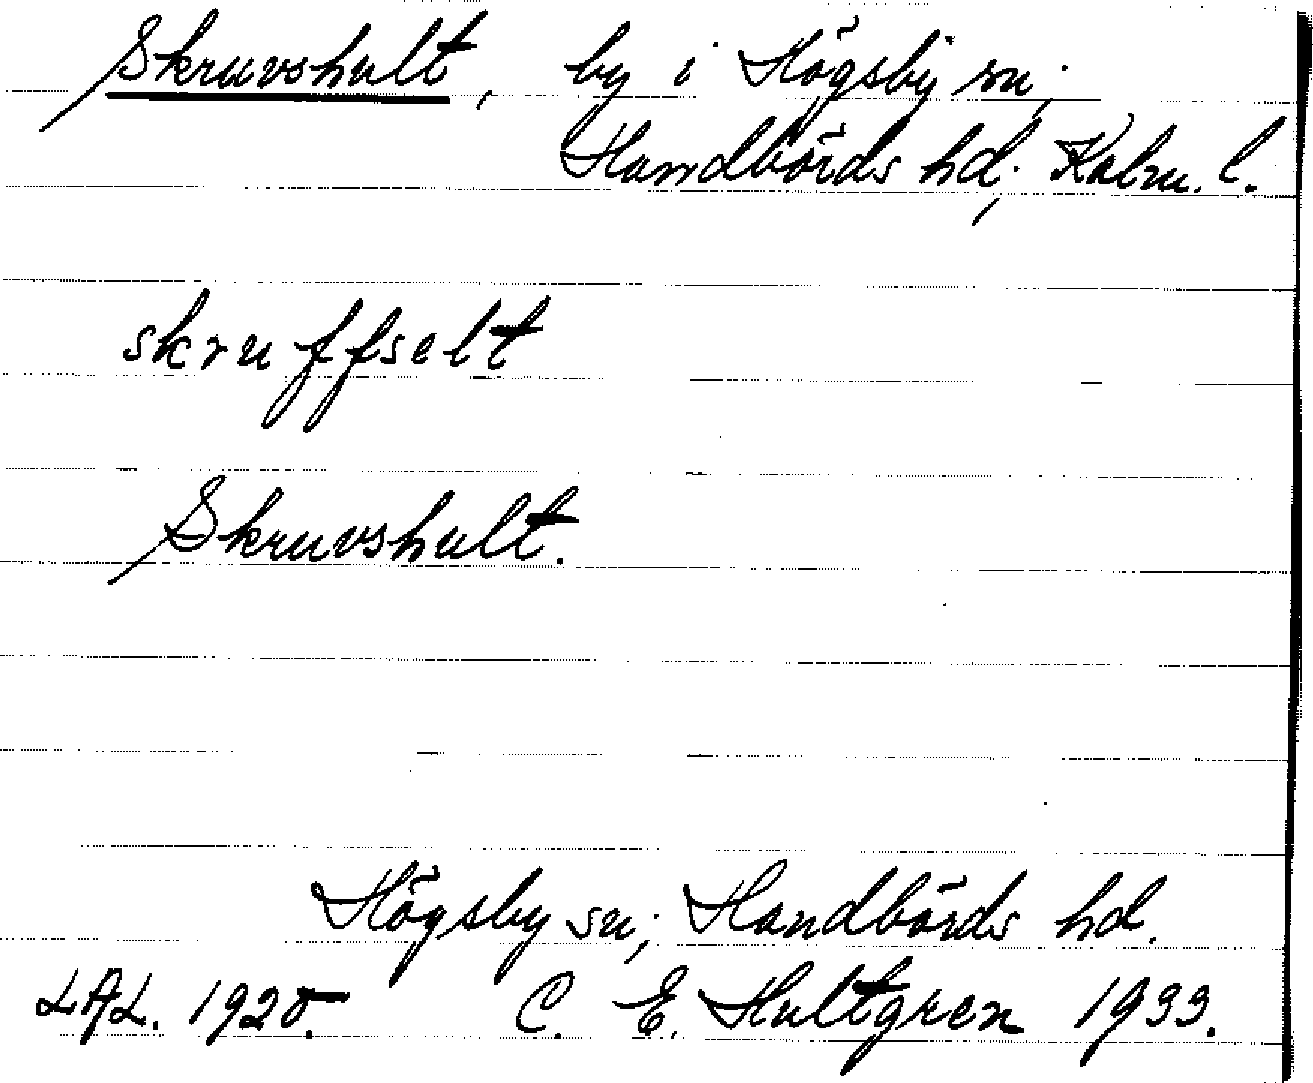 Skruvshult, by i Högsby sn;
Handbörds hd; Kalm. l.
skruffselt
Skruvshult.
Högsby sn; Handbörds hd.
LAL. 1925. C. E. Hultgren 1933.